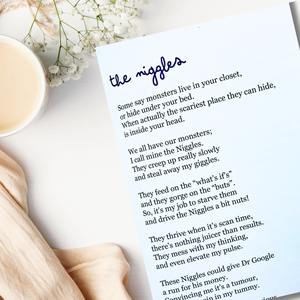 the niggles
Some say monsters live in your closet,
or hide under your bed.
When actually the scariest place they can hide,
is inside your head.
We all have our monsters;
I call mine the Niggles.
They creep up really slowly
and steal away my giggles.
They feed on the “what’s if’s”
and they gorge on the “buts”.
So, it’s my job to starve them
and drive the Niggles a bit nuts!
They thrive when it’s scan time,
there’s nothing juicer than results.
They mess with my thinking,
and even elevate my pulse.
These Niggles could give Dr Google
a run for his money.
Convincing me it’s a tumour,
pain in my tummy.